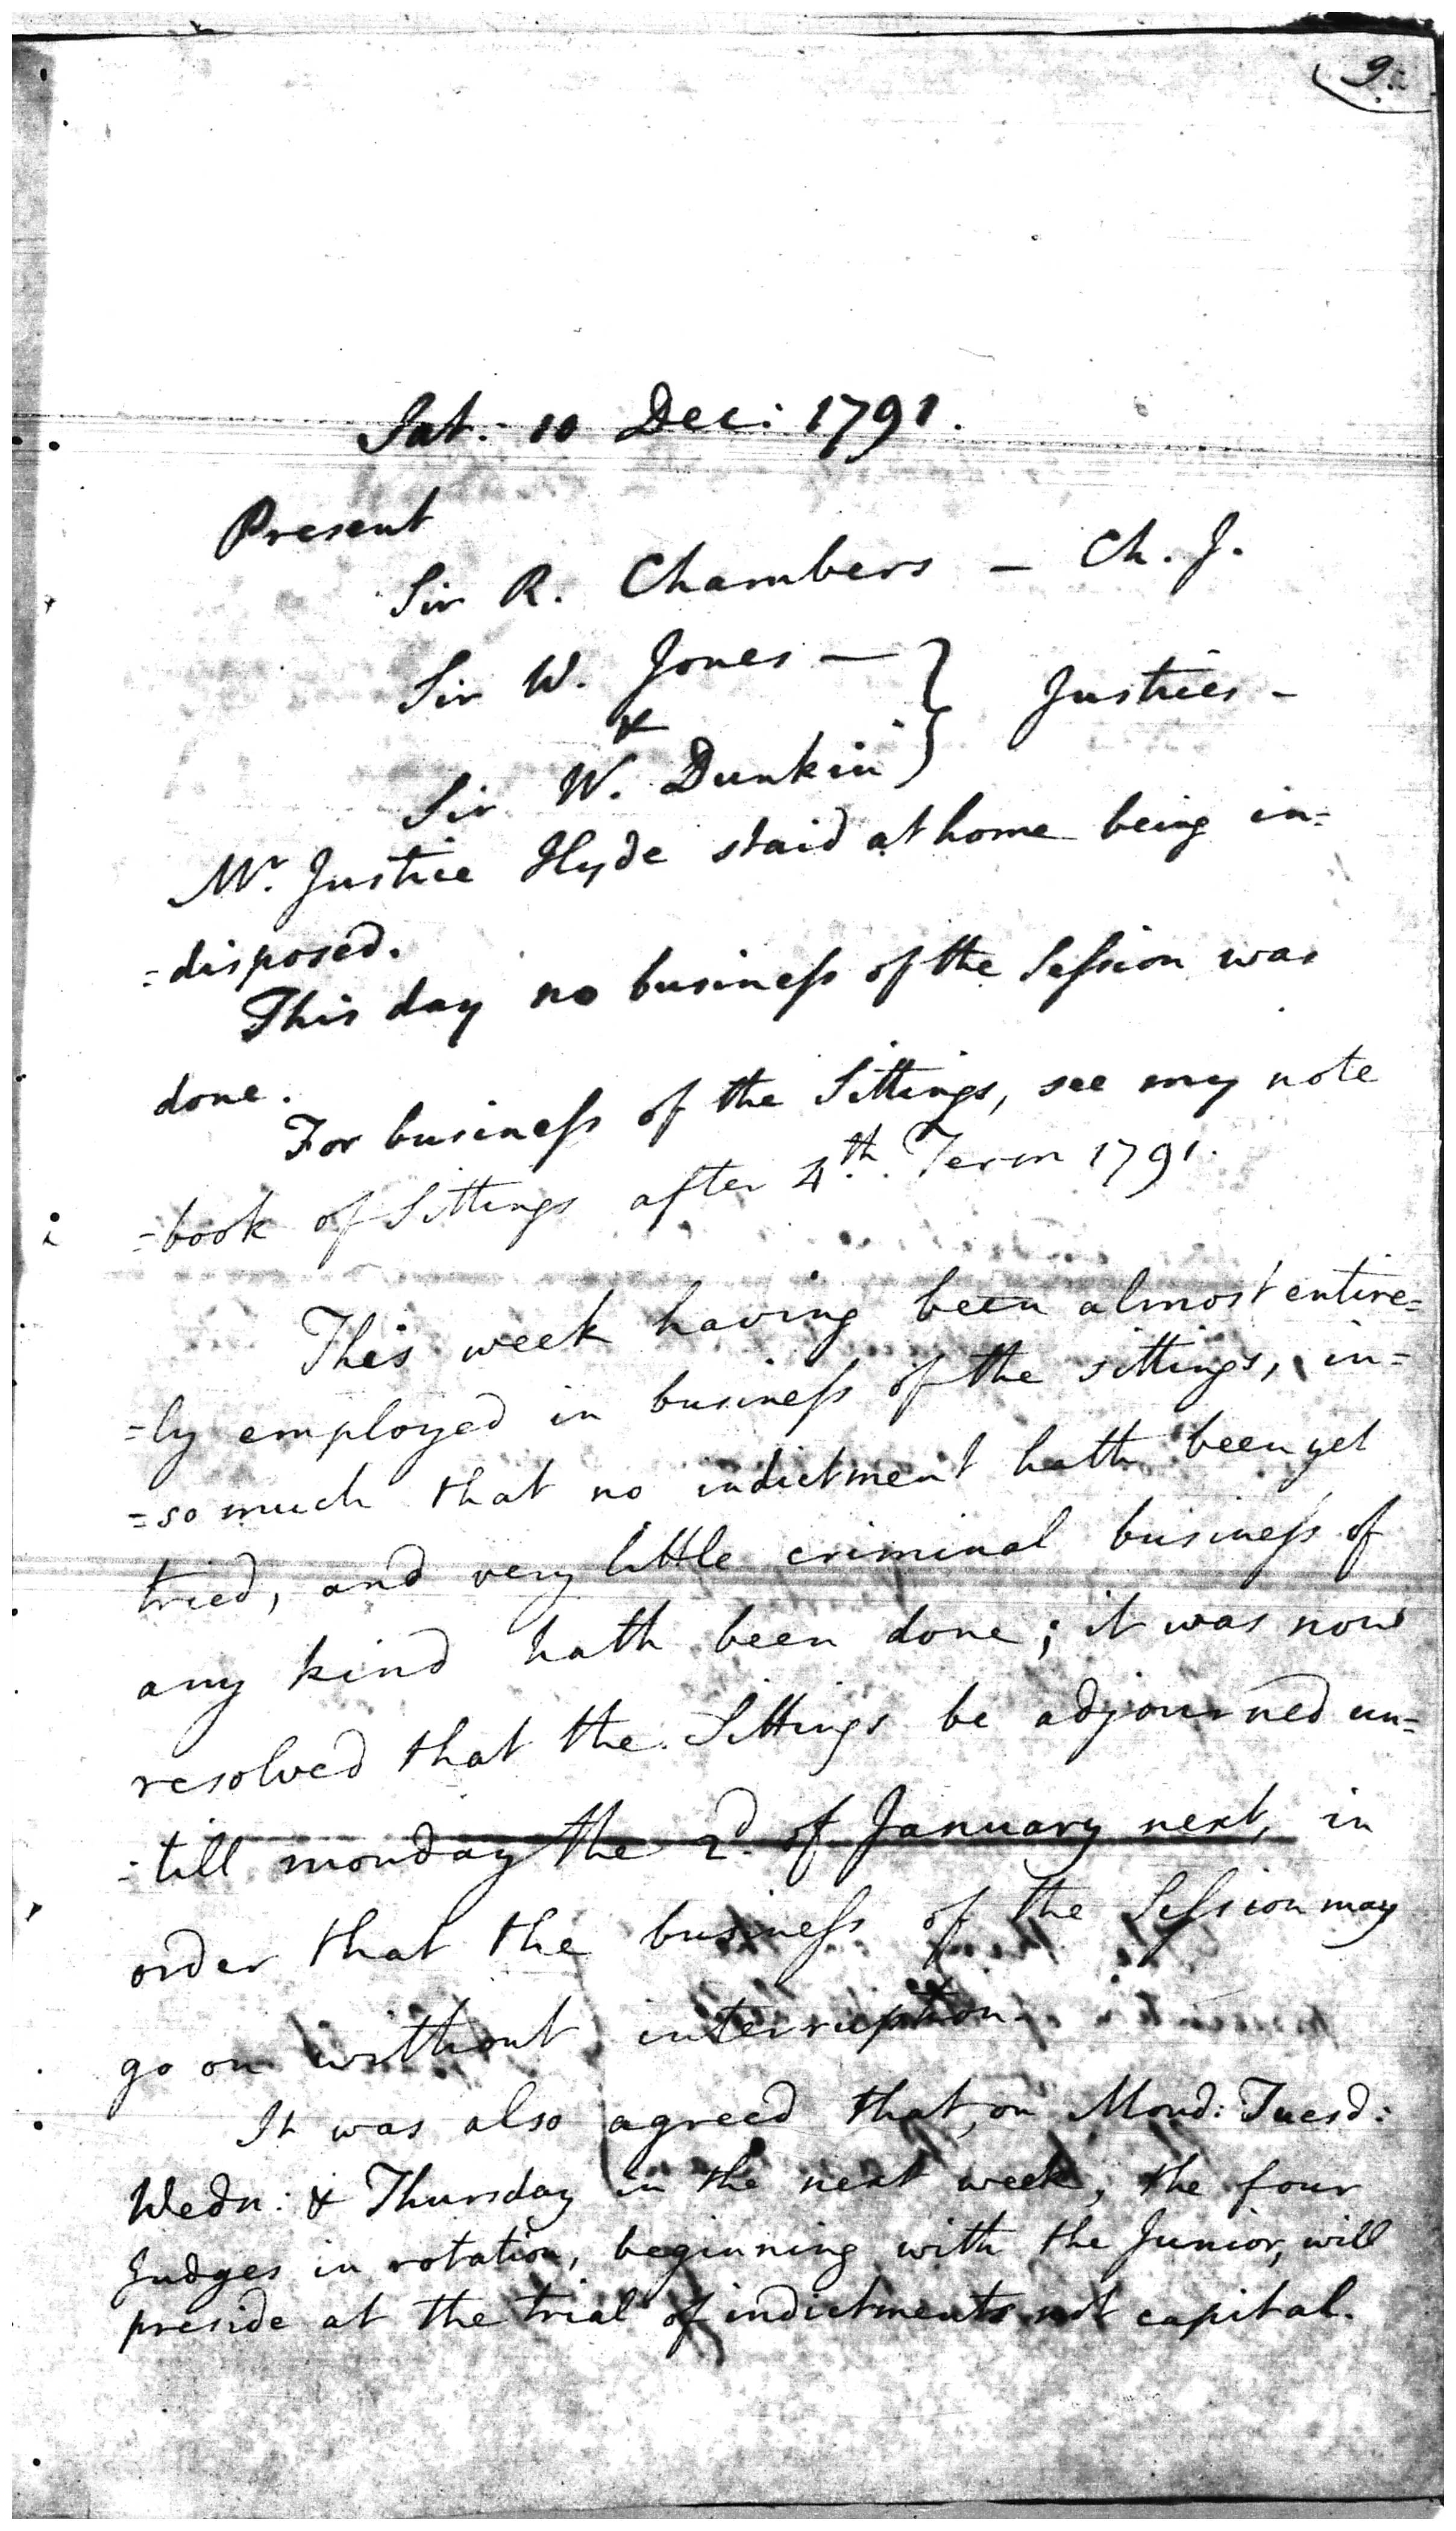 9.
Sat. 10 Dec: 1791.
Present
Sir R. Chambers – Ch. J.
Sir W. Jones – } Justices –
&
Sir W. Dunkin }
Mr. Justice Hyde staid at home being in=
=disposed.
This day no businefs of the Sefsion was
done.
For businefs of the Sittings, see my note
=book of Sittings after 4th. Term 1791.
This week having been almost entire=
=ly employed in businefs of the sittings, in=
=so much that no indictment hath been yet
tried, and very little criminal businefs of
any kind hath been done; it was now
resolved that the Sittings be adjourned un=
=till monday the 2d. of January next, in
order that the businefs of the Sefsion may
go on without interruption.
It was also agreed that, on Mond: Tuesd:
Wedn: & Thursday in the next week, the four
Judges in rotation, beginning with the Junior, will
preside at the trial of indictments not capital.